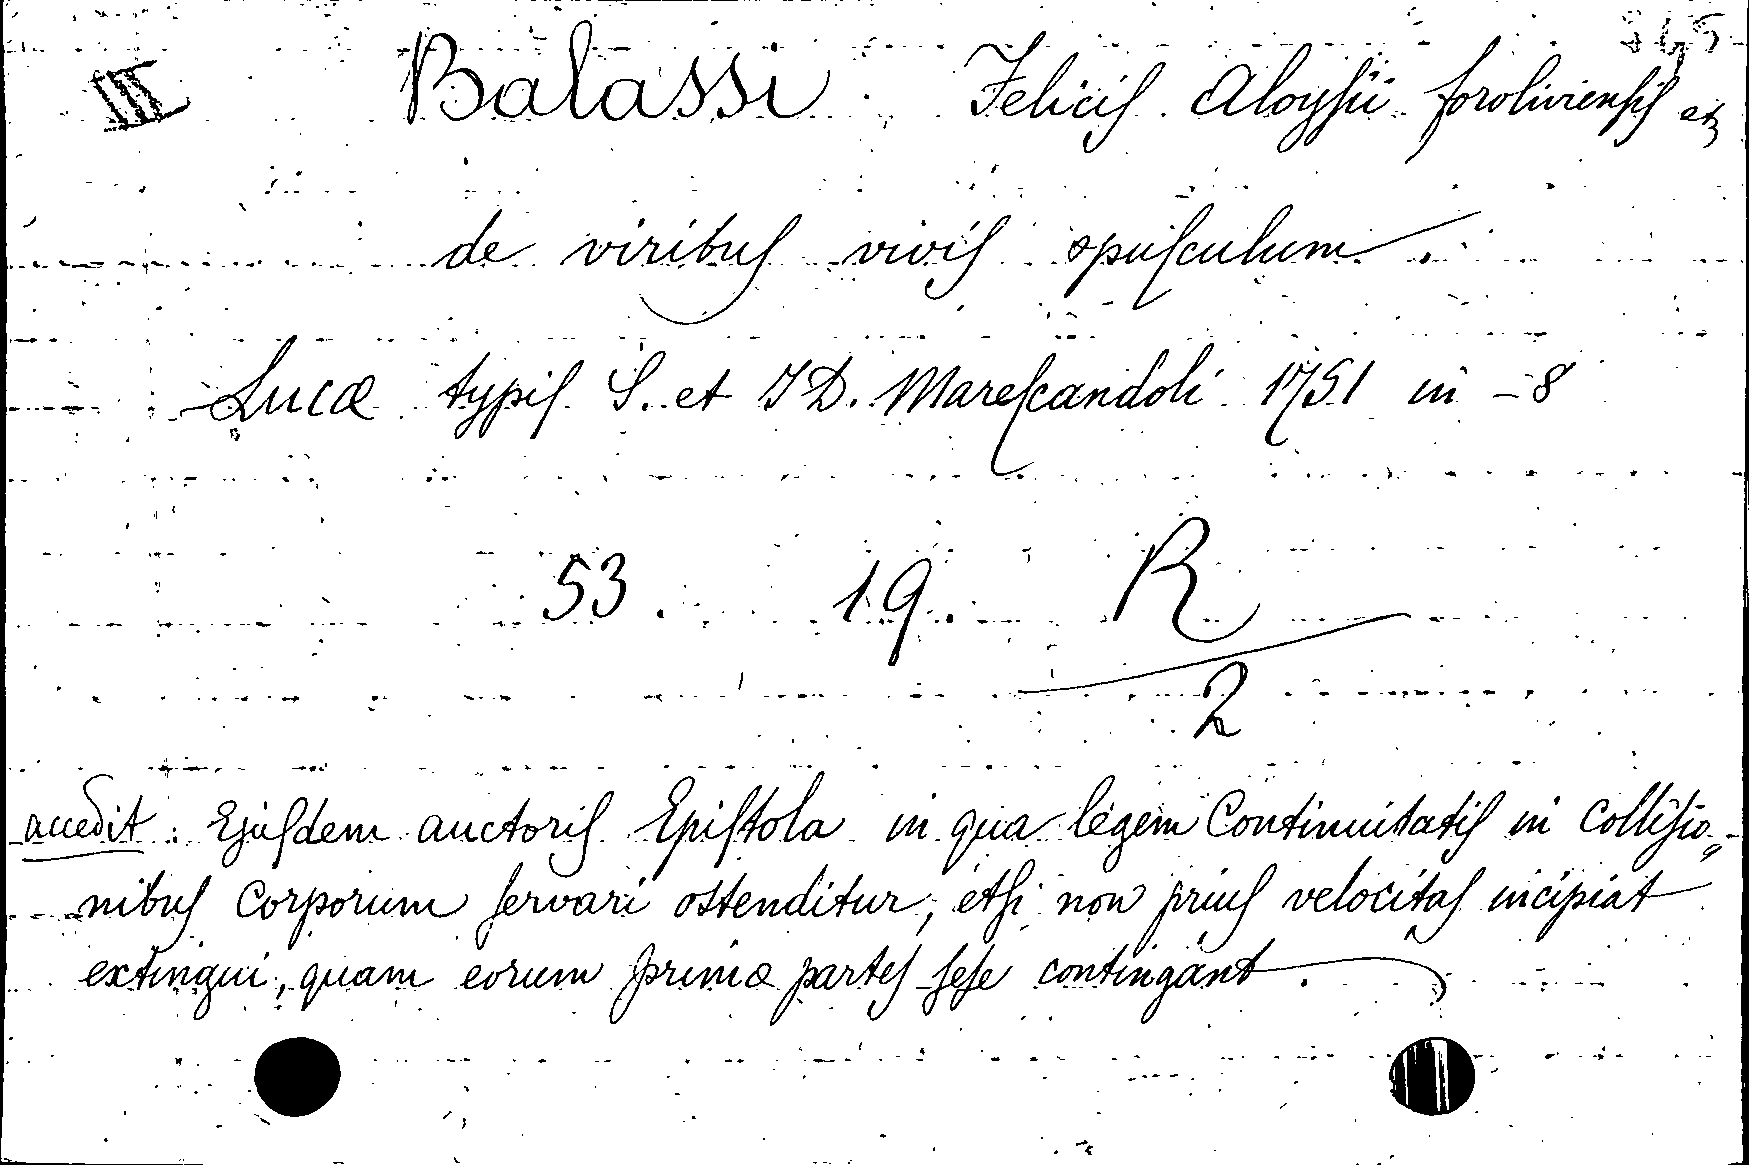 III Balassi Felicis Aloysii foroliviensis et
de viribus vivis opusculum.
Lucæ typis S. et J D. Marescandoli 1751 in - 8
53. 19. R
2
accedit: Ejusdem auctoris Epistola in qua legem Continuitatis in Collisio„
nibus Corporum servari ostenditur, etsi non prius velocitas incipiat
extingui, quam eorum primæ partes sese contingant.